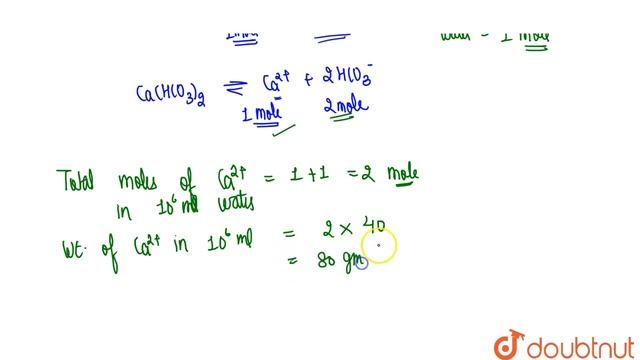 1 mole
Ca(HCO₃)₂ ⇌ Ca²⁺ + 2HCO₃⁻
1 mole 2 mole
Total moles of Ca²⁺ = 1+1 = 2 mole
in 10⁶ ml water
Wt. of Ca²⁺ in 10⁶ ml = 2 × 40
= 80 gm
doubtnut